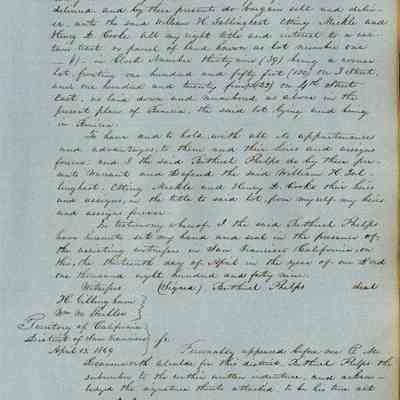 delivered, and by these presents do bargain sell and deliv-
er, unto the said William H. Tallinghest Etting Mickle and
Henry D. Cooke all my right title and interest to a cer-
tain east or parcel of land known as lot number one
— (1). in Block Number thirty nine (39) being a corner
lot, fronting one hundred and fifty feet (150) on I street,
and one hundred and twenty five (125) on 4th Street
East, as laid down and numbered as above in the
present plan of Benicia, the said lot lying and being
in Benicia.
To have and to hold, with all its appurtenances
and advantages, to them and their heirs and assigns
forever. and I the said Bethuel Phelps do by these pre-
sents Warrant and Defend the said William H. Tal-
linghest, Etting Mickle and Henry D. Cooke their heirs
and assigns, in the title to said lot, from myself my heirs
and assigns forever.
In testimony whereof I the said Bethuel Phelps
have hereunto set my hand and seal in the presence of,
the assisting witnesses in San Francisco California on
this, the thirteenth day of April in the year of our Lord
one thousand eight hundred and forty nine.
Witnesses (Signed) Bethuel Phelps seal
Wm M
Territory of California
District of San Francisco } Ss.
April 13. 1849 Personally appeared before me T. M.
Leavenworth Alcalde for this district, Bethuel Phelps the
subscriber to the within written indenture, and acknow-
ledged the signature thereto attached to be his true act